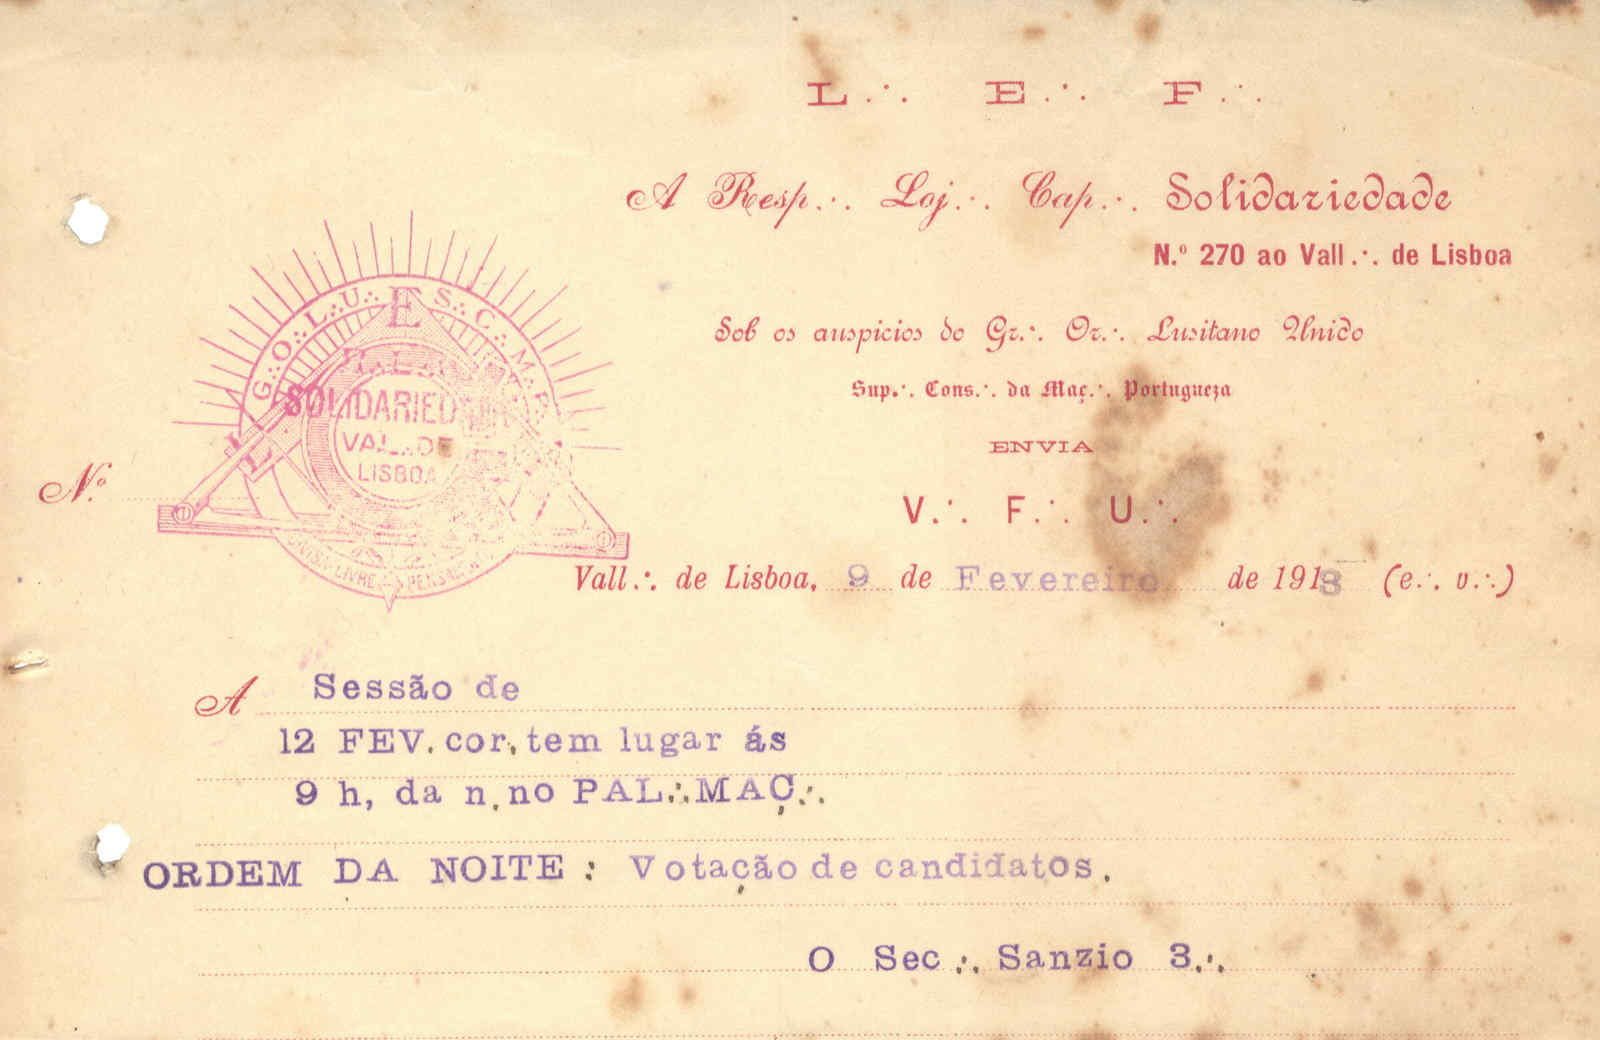 L.·. E.·. F.·.
A Resp.·. Loj.·. Cap.·. Solidariedade
N.º 270 ao Vall.·. de Lisboa
Sob os auspicios do Gr.·. Or.·. Lusitano Unido
Sup.·. Cons.·. da Maç.·. Portugueza
ENVIA
V.·. F.·. U.·.
G.·.O.·.L.·.U.·. S.·.C.·.M.·.P.
L E
SOLIDARIED
VAL.·.DE
LISBOA
LIVRE
N.º
Vall.·. de Lisboa, 9 de Fevereiro de 1913 (e.·. v.·.)
A Sessão de
12 FEV. cor, tem lugar ás
9 h, da n. no PAL.·.MAÇ.·.
ORDEM DA NOITE : Votação de candidatos.
O Sec.·. Sanzio 3.·.